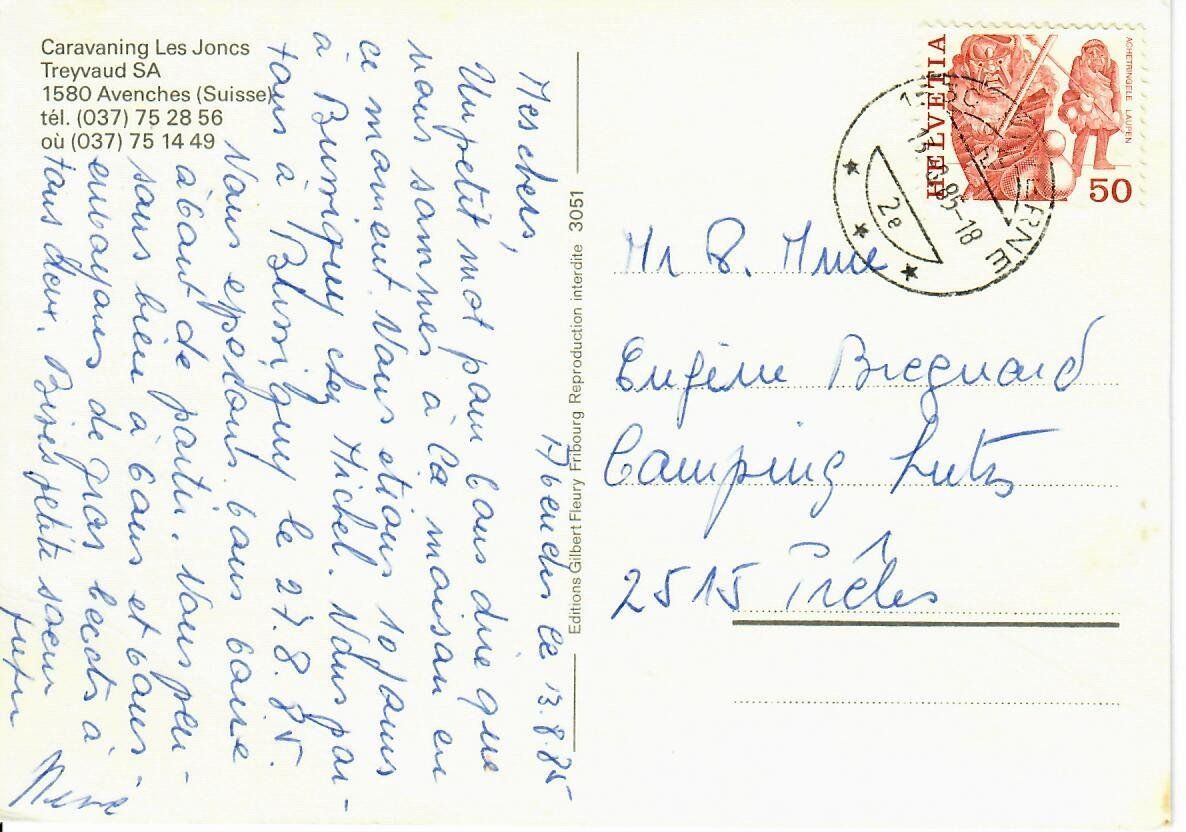 Caravaning Les Joncs
Treyvaud SA
1580 Avenches (Suisse)
tél. (037) 75 28 56
où (037) 75 14 49
Avenches le 13.8.85
Mes chers,
Un petit mot pour vous dire que
nous sommes à la maison en
ce moment. Nous étions 10 jours
à Bussigny chez Michel. Nous par-
tons à Bussigny le 27.8.85.
Nous espérons vous voire
avant de partir. Nous pen-
sons bien à vous et vous
envoyons de gros becots à
tous deux. Bises petite soeur
Editions Gilbert Fleury Fribourg Reproduction interdite 3051
HELVETIA
ACHETRINGELE LAUPEN
50
2e
85-18
Mr & Mme
Eugène Breguard
Camping Lutz
2515 Prêles